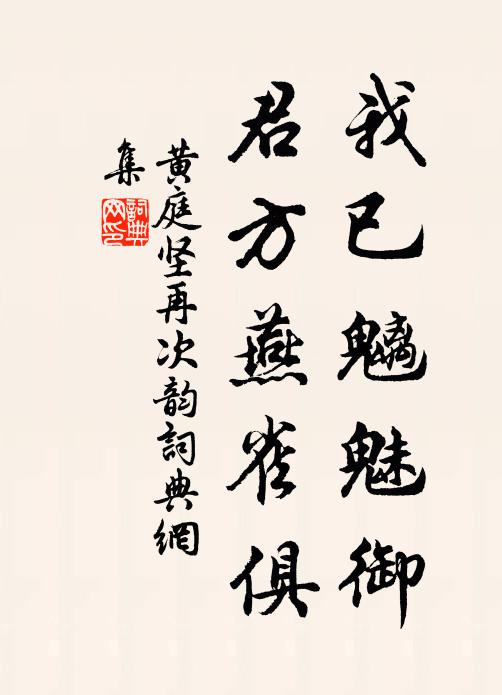 我已魑魅御
君方燕雀俱
黄庭坚再次韵詞典網
集
詞典
网印